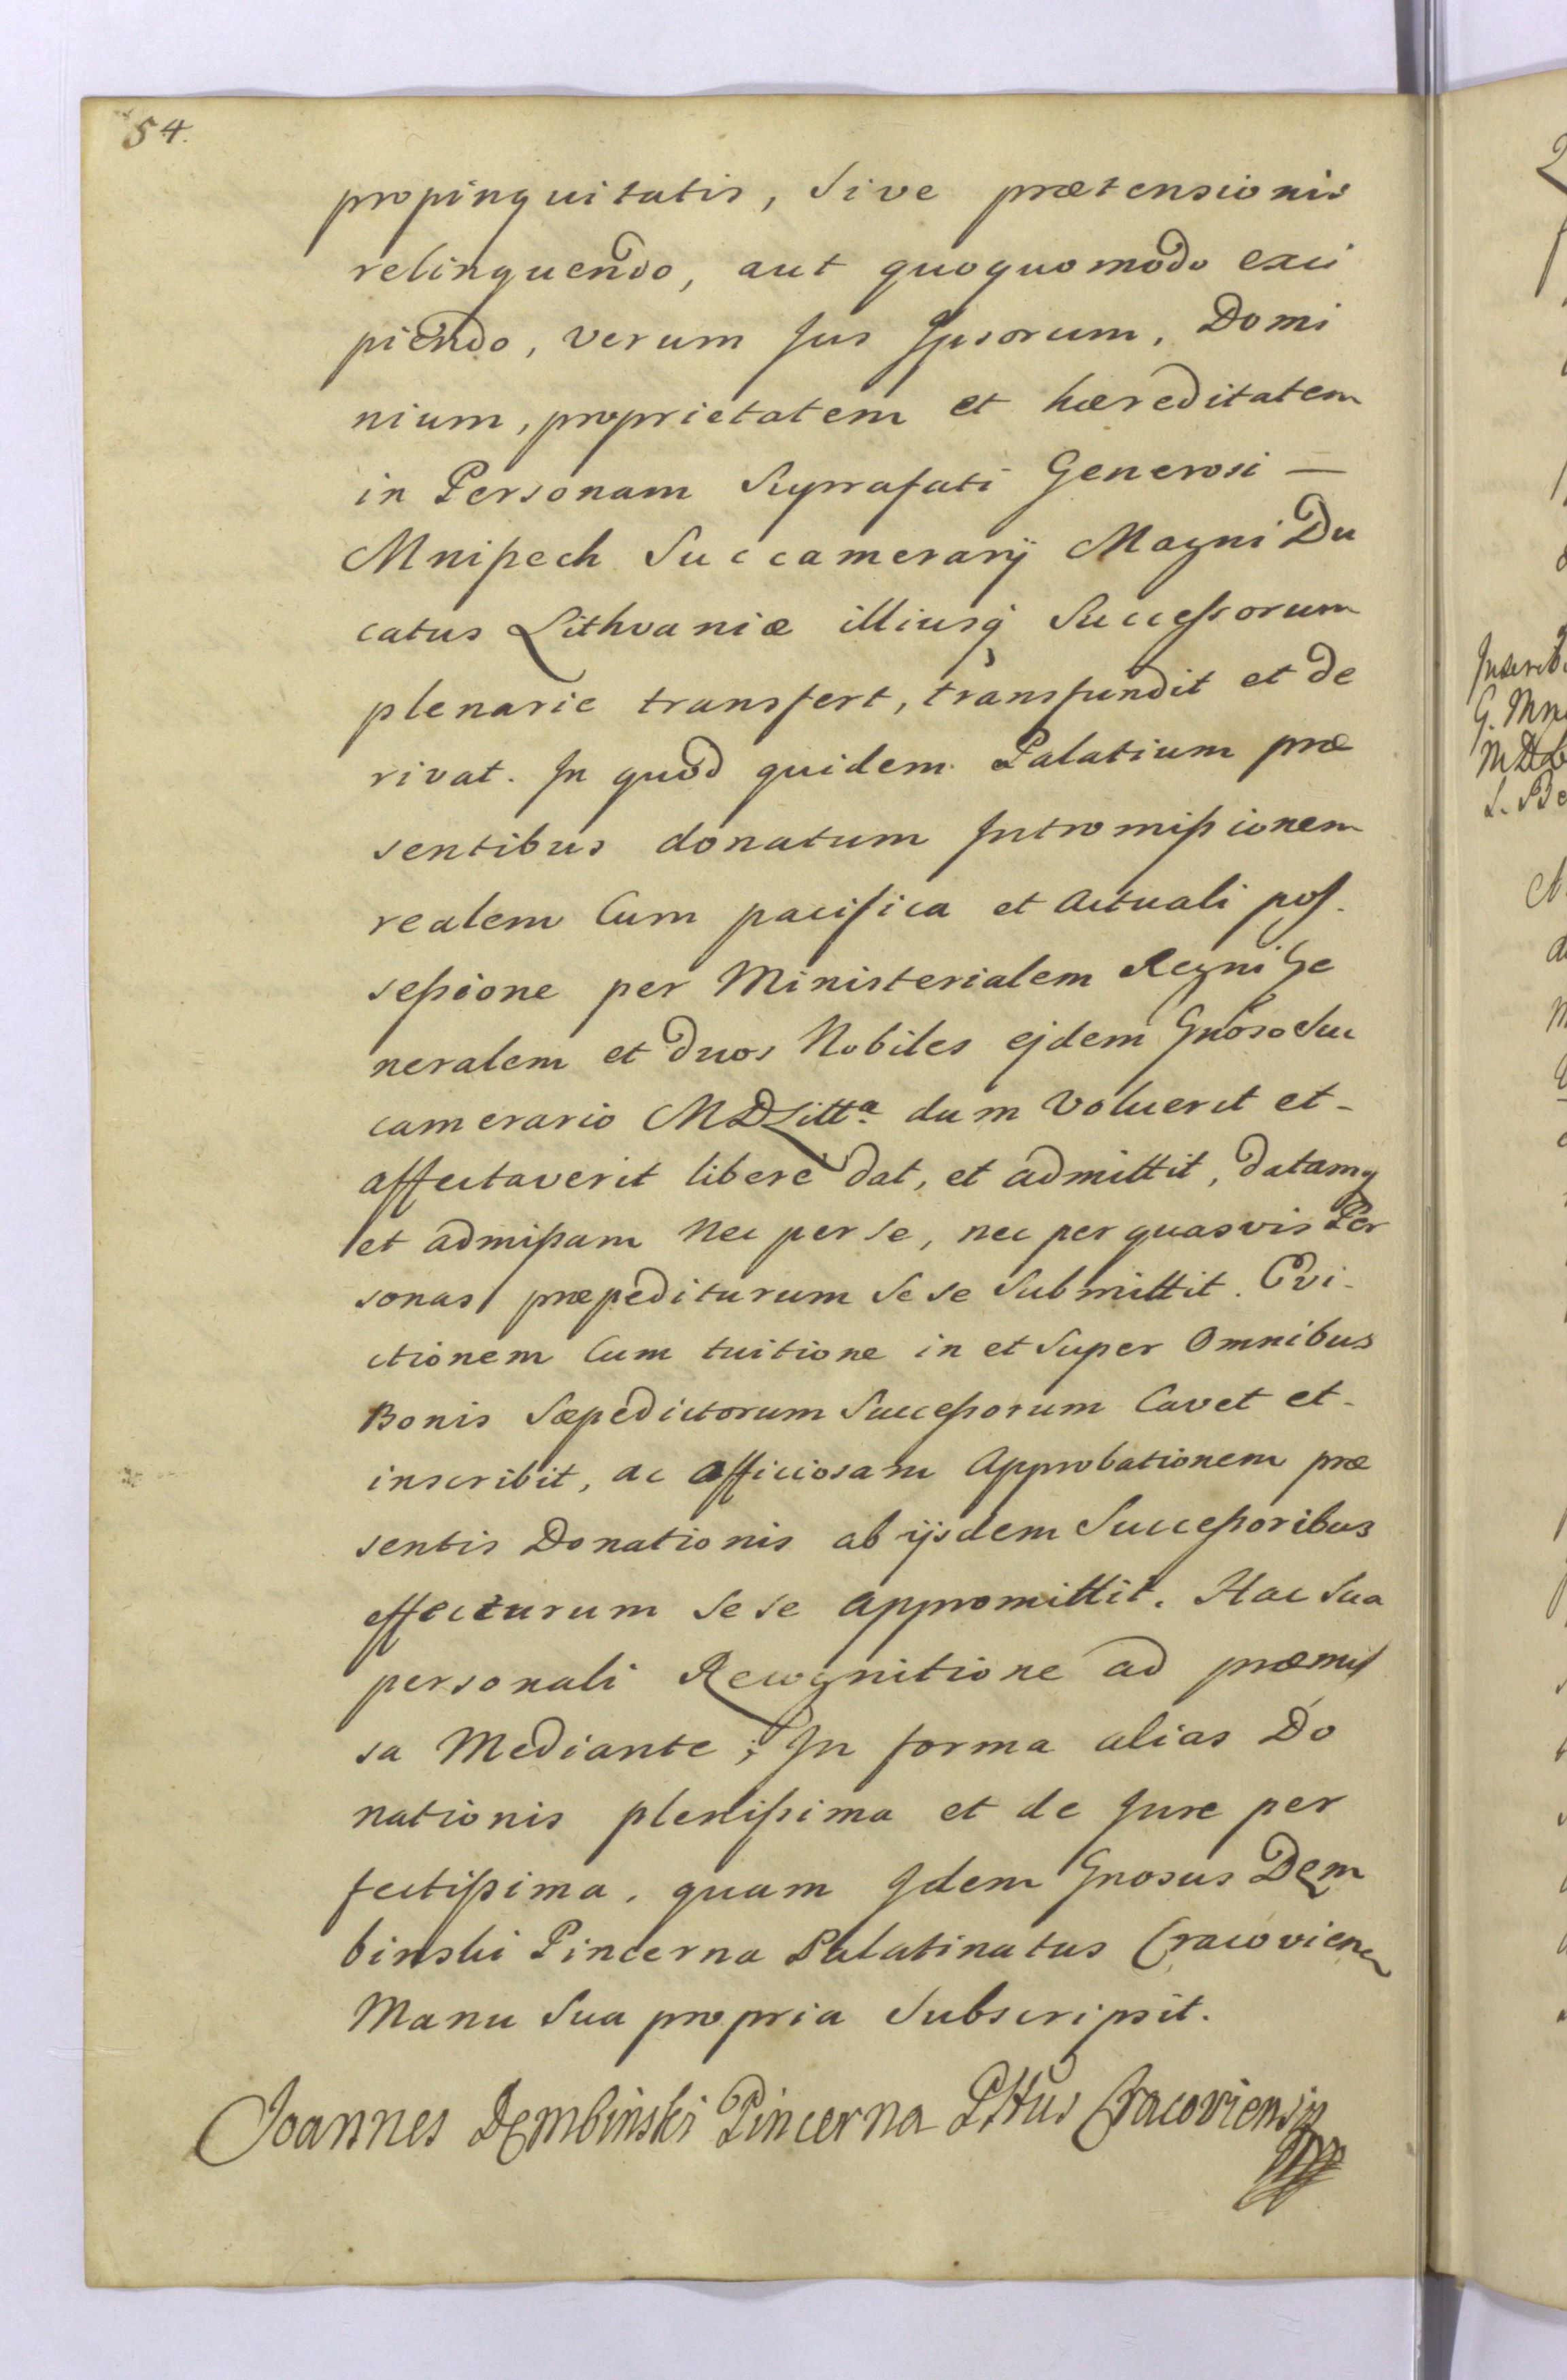 54.
propinquitatis, sive prætensionis
relinquendo, aut quoquomodo exci
piendo, verum Jus Ipsorum, Domi
nium, proprietatem et hæreditatem
in Personam Suprafati Generosi —
Mniszech Succamerarij Magni Du
catus Lithvaniæ illiusq̀ Successorum
plenarie transfert, transfundit et de
rivat. In quod quidem Palatium præ
sentibus donatum Intromissionem
realem Cum pacifica et Actuali pos.
sessione per Ministerialem Regni Ge
neralem et duos Nobiles ejdem Gnoso Suc
camerario MDLittæ dum Voluerit et-
affectaverit libere dat, et admittit, datamq
et admissam Nec per se, nec per quasvis Per
sonas præpediturum Se se Submittit. Evi-
ctionem Cum tuitione in et Super Omnibus
Bonis Sæpedictorum Successorum Cavet et-
inscribit, ac Officiosam Approbationem præ
sentis Donationis ab ijsdem Successoribus
effecturum Se se appromittit. Hac Sua
personali Recognitione ad præmis
sa Mediante; In forma alias Do
nationis plenissima et de Jure per
fectissima. quam Idem Gnosus Dem
binski Pincerna Palatinatus Cracovien
Manu Sua propria Subscripsit.
Joannes Dembinski Pincerna Pttus Cracoviensis
Inscrib
G. Mni
MDL